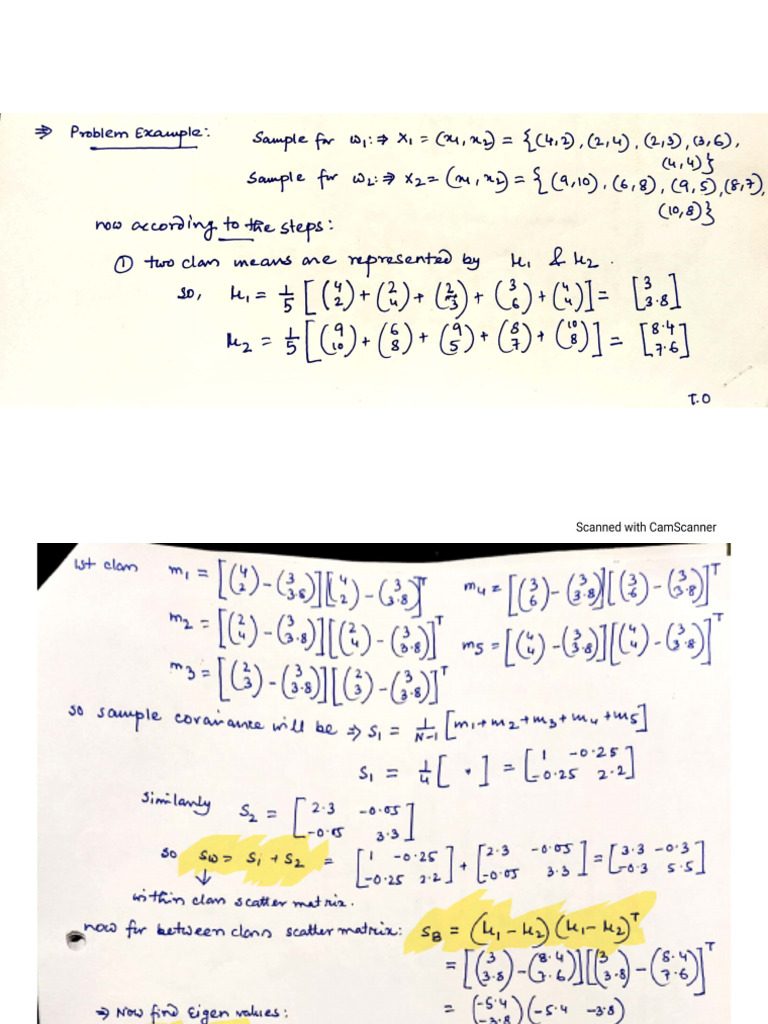 ⇒ Problem Example: Sample for ω₁:⇒ X₁ = (x₁, x₂) = {(4,2), (2,4), (2,3), (3,6),
(4,4)}
Sample for ω₂:⇒ X₂ = (x₁, x₂) = {(9,10), (6,8), (9,5), (8,7),
(10,8)}
now according to the steps:
① two class means are represented by μ₁ & μ₂.
so, μ₁ = 1/5 [(4 2) + (2 4) + (2 3) + (3 6) + (4 4)] = [3 3.8]
μ₂ = 1/5 [(9 10) + (6 8) + (9 5) + (8 7) + (10 8)] = [8.4 7.6]
T.O
Scanned with CamScanner
1st class m₁ = [(4 2) - (3 3.8)][(4 2) - (3 3.8)]ᵀ m₄ = [(3 6) - (3 3.8)][(3 6) - (3 3.8)]ᵀ
m₂ = [(2 4) - (3 3.8)][(2 4) - (3 3.8)]ᵀ m₅ = [(4 4) - (3 3.8)][(4 4) - (3 3.8)]ᵀ
m₃ = [(2 3) - (3 3.8)][(2 3) - (3 3.8)]ᵀ
so sample covariance will be ⇒ S₁ = 1/(N-1) [m₁+m₂+m₃+m₄+m₅]
S₁ = 1/4 [ • ] = [1 -0.25 -0.25 2.2]
Similarly S₂ = [2.3 -0.05 -0.05 3.3]
so Sw = S₁ + S₂ = [1 -0.25 -0.25 2.2] + [2.3 -0.05 -0.05 3.3] = [3.3 -0.3 -0.3 5.5]
↓
within class scatter matrix.
now for between class scatter matrix: S_B = (μ₁ - μ₂)(μ₁ - μ₂)ᵀ
= [(3 3.8) - (8.4 7.6)][(3 3.8) - (8.4 7.6)]ᵀ
⇒ Now find Eigen values: = (-5.4 -3.8)(-5.4 -3.8)